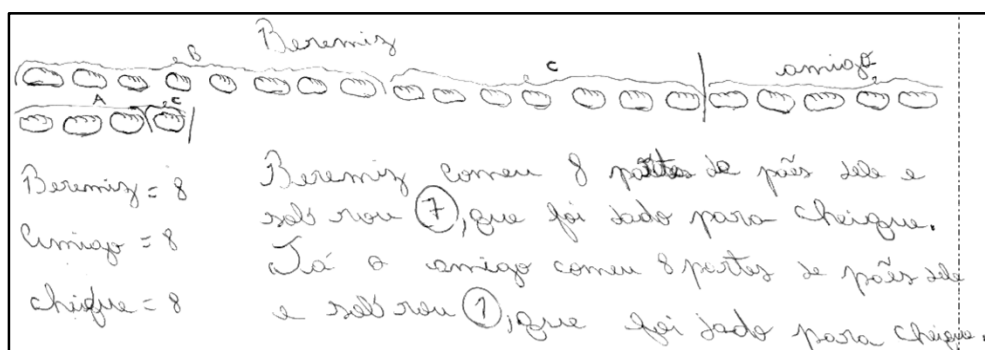 Beremiz
B
C
amigo
A C
Beremiz = 8
amigo = 8
cheique = 8
Beremiz comeu 8 partes de pães dele e
sobrou 7, que foi dado para cheique.
Já o amigo comeu 8 partes de pães dele
e sobrou 1, que foi dado para cheique.